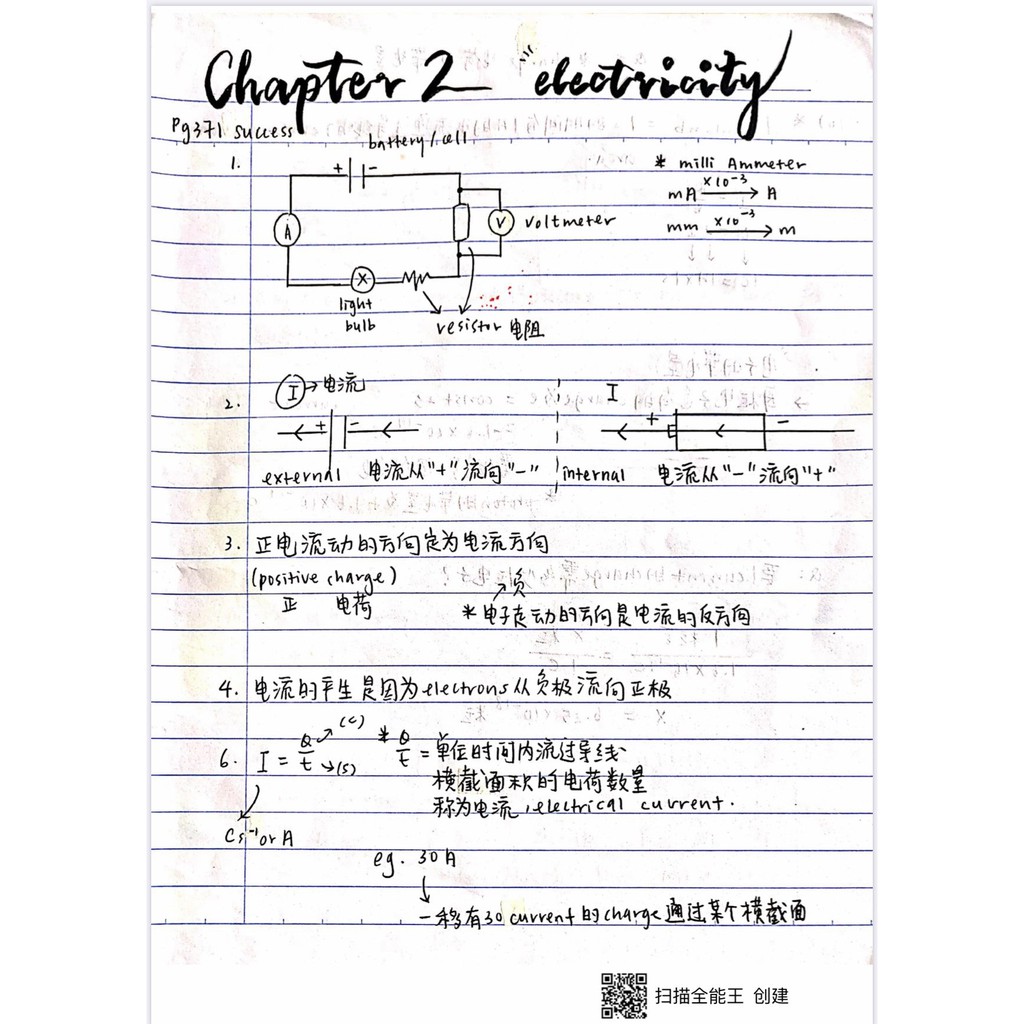 Chapter 2 "electricity"
Pg371 success
1.
battery/cell
+ -
A
V voltmeter
X
light
bulb
resistor 电阻
* milli Ammeter
mA ×10⁻³→ A
mm ×10⁻³→ m
2. I → 电流
+ -
external 电流从"+"流向"-"
I
+ -
internal 电流从"-"流向"+"
3. 正电流动的方向定为电流方向
(positive charge)
正 电荷
↗负
* 电子走动的方向是电流的反方向
4. 电流的产生是因为electrons从负极流向正极
6. I = Q/t
(C)
→(s)
Cs⁻¹ or A
* Q/t = 单位时间内流过导线
横截面积的电荷数量
称为电流,electrical current.
eg. 30A
↓
一秒有30 current的charge通过某个横截面
扫描全能王 创建